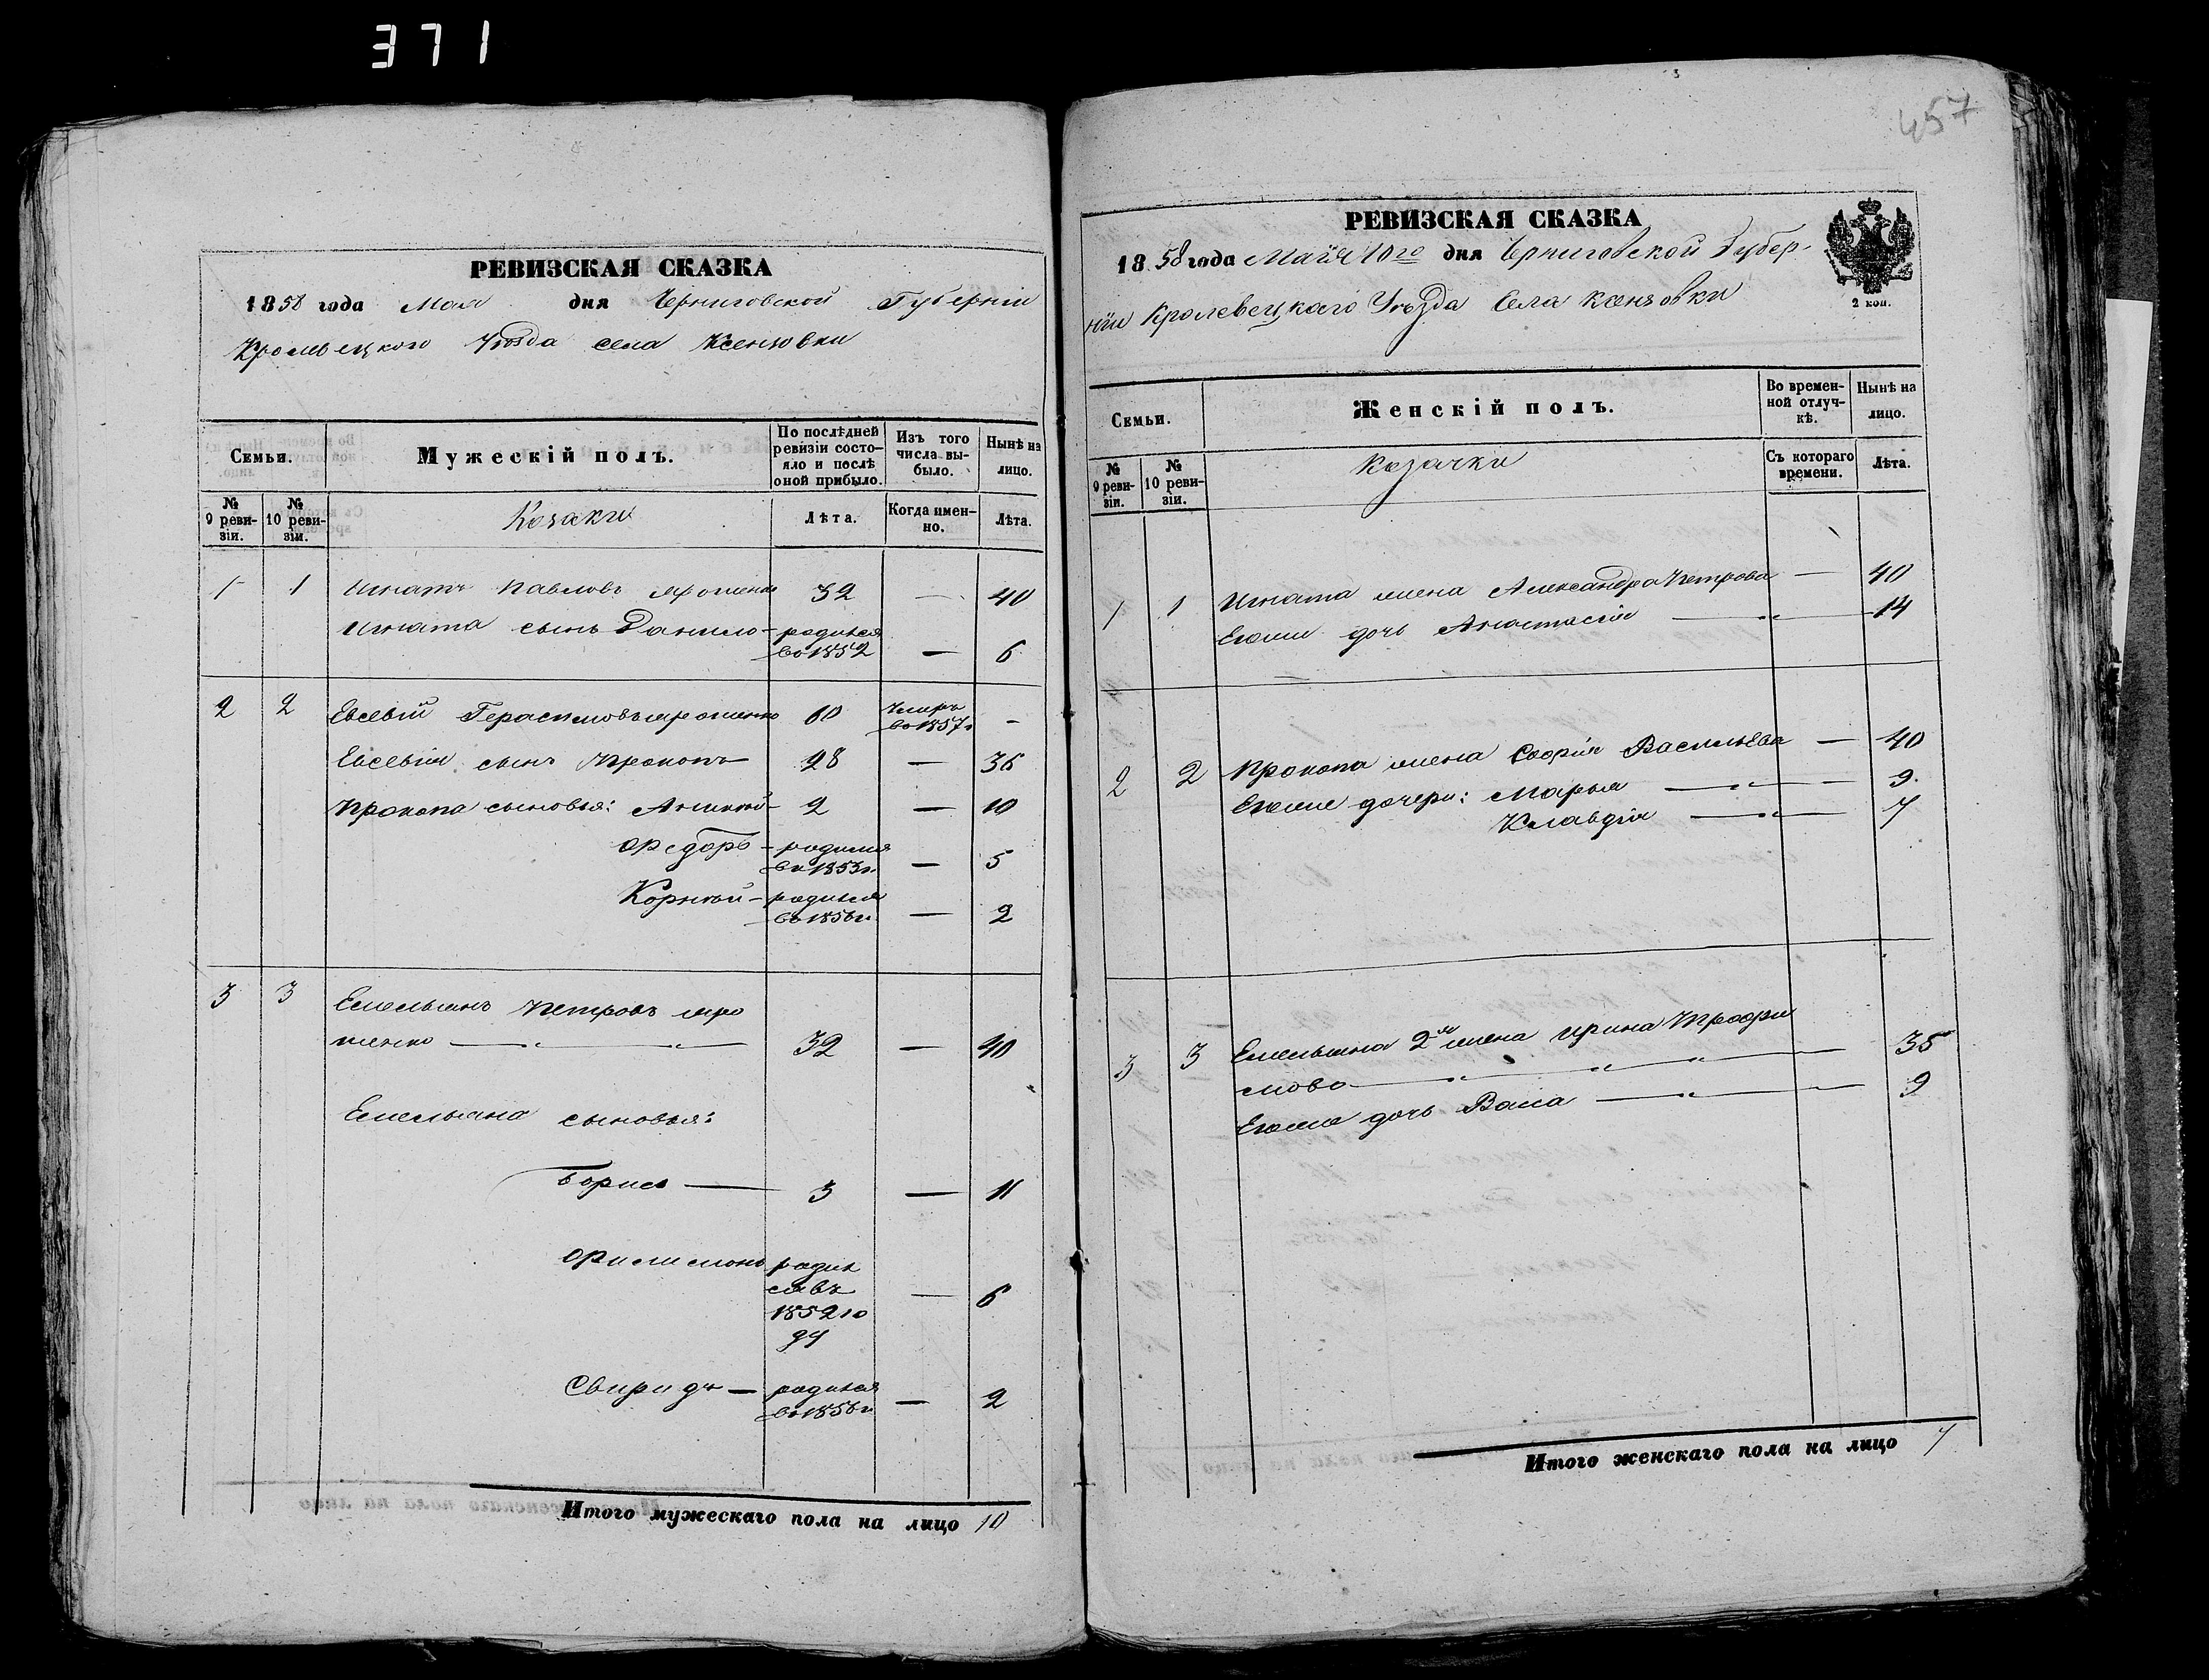 371
457
РЕВИЗСКАЯ СКАЗКА
1858 года Мая дня Черниговской Губерніи
Кролевецкого Уѣзда села Ксензовки
Семьи.
Мужескій полъ.
По послѣдней ревизіи состояло и послѣ оной прибыло.
Изъ того числа выбыло.
Нынѣ на лицо.
№ 9 ревизіи.
№ 10 ревизіи.
Козаки
Лѣта.
Когда именно.
Лѣта.
1 1 Игнатъ Павловъ 32 — 40
Игната сынъ Данило - родился во 1852 — 6
2 2 Евсевій Герасимовъ 60 Умеръ во 1857г -
Евсевія сынъ Прокопъ 28 — 36
Прокопа сыновья: 2 — 10
Федоръ - родился во 1853г. — 5
Корнѣй - родился во 1856г. — 2
3 3 Емельянъ Петровъ
32 — 40
Емельяна сыновья:
Борисъ — 3 — 11
Филимонъ родился въ 1852 году — 6
Свиридъ — родился во 1856г — 2
Итого мужескаго пола на лицо 10
РЕВИЗСКАЯ СКАЗКА
1858 года Маія 10го дня Черниговской Губер-
ніи Кролевецкаго Уѣзда Села Ксензовки
2 коп.
Семьи.
Женскій полъ.
Во временной отлучкѣ.
Нынѣ на лицо.
№ 9 ревизіи.
№ 10 ревизіи.
Козачки
Съ котораго времени.
Лѣта.
1 1 Игната жена Александра Петрова — 40
Егоже дочь Анастасія — 14
2 2 Прокопа жена Софія Васильева — 40
Егоже дочери: Марья — 9
Клавдія — 7
3 3 Емельяна 2я жена Ирина Трофи
мова — 35
Егоже дочь Васса — 9
Итого женскаго пола на лицо 7